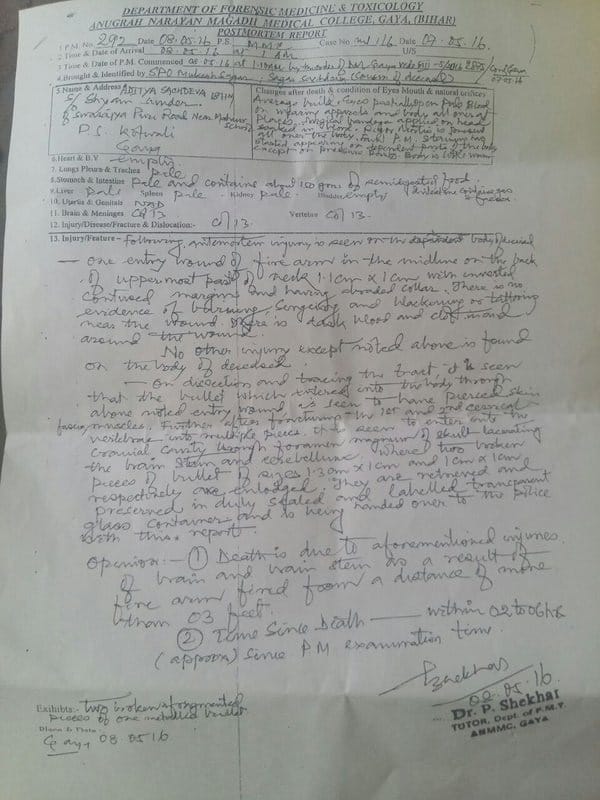 DEPARTMENT OF FORENSIC MEDICINE & TOXICOLOGY
ANUGRAH NARAYAN MAGADH MEDICAL COLLEGE, GAYA, (BIHAR)
POSTMORTEM REPORT
1 P.M. No. 292 Date 08.05.16 P.S. M.M.C Case No. 116 Date 07.05.16
2 Time & Date of Arrival 08.05.16 at 1 AM U/S
3 Time & Date of P.M. Commenced 08.05.16 at 1.10AM by the order of D.M. Gaya
4 Brought & Identified by SPO Mukesh
5 Name & Address ADITYA SACHDEVA
S/ Shyam Sunder
Swarajya Puri Road Near
School
P.S. Kotwali
Gaya
Changes after death & condition of Eyes Mouth & natural orifices
Average built. Eyes
on wearing apparels and body at several
places. Surgical bandage applied on head
soaked in blood. Rigor Mortis is present
all over the body. P.M. Staining
appearing on dependent parts of the body
except on pressure Body is
6. Heart & B.V empty
7. Lungs Pleura & Trachea pale
8. Stomach & Intestine pale and contains about 100 gms of semidigested food.
9. Liver pale Spleen pale Kidney pale Bladder empty
10. Utaria & Genitals NAD
11. Brain & Meninges Col 13 Vertebre Col 13
12. Injury/Disease/Fracture & Dislocation:- Col 13
13. Injury/Feature- Following antemortem injury is seen on the body of deceased
— one entry wound of fire arm in the midline on the back
of uppermost part of neck 1.1cm x 1cm with inverted
contused margins and having abraded collar. There is no
evidence of burning, Singeing and blackening or tattooing
near the wound. There is dark blood and clot in and
around the wound.
No other injury except noted above is found
on the body of deceased.
— On dissection and tracing the tract it is seen
that the bullet which entered into the body through
above noted entry wound is seen to have pierced skin
muscles. Further after fracturing the 1st and 2nd cervical
vertebrae into multiple pieces it is seen to enter into the
cranial cavity through foramen magnum of skull lacerating
the brain stem and cerebellum, where two broken
pieces of bullet of sizes 1.3cm x 1cm and 1cm x 1cm
respectively are enlodged. They are retrieved and
preserved in duly sealed and labelled transparent
glass container and is being handed over to the police
with this report.
Opinion:- (1) Death is due to aforementioned injuries
of brain and brain stem as a result of
fire arm fired from a distance of more
than 03 feet.
(2) Time Since Death — within 02 to 06 hrs
(approx) since PM examination time.
Shekhar
08.05.16
Dr. P. Shekhar
TUTOR, Dept. of F.M.T.
ANMMC, GAYA
Exhibits:- two broken & fragmented
pieces of one metallic bullet
Gaya, 08.05.16